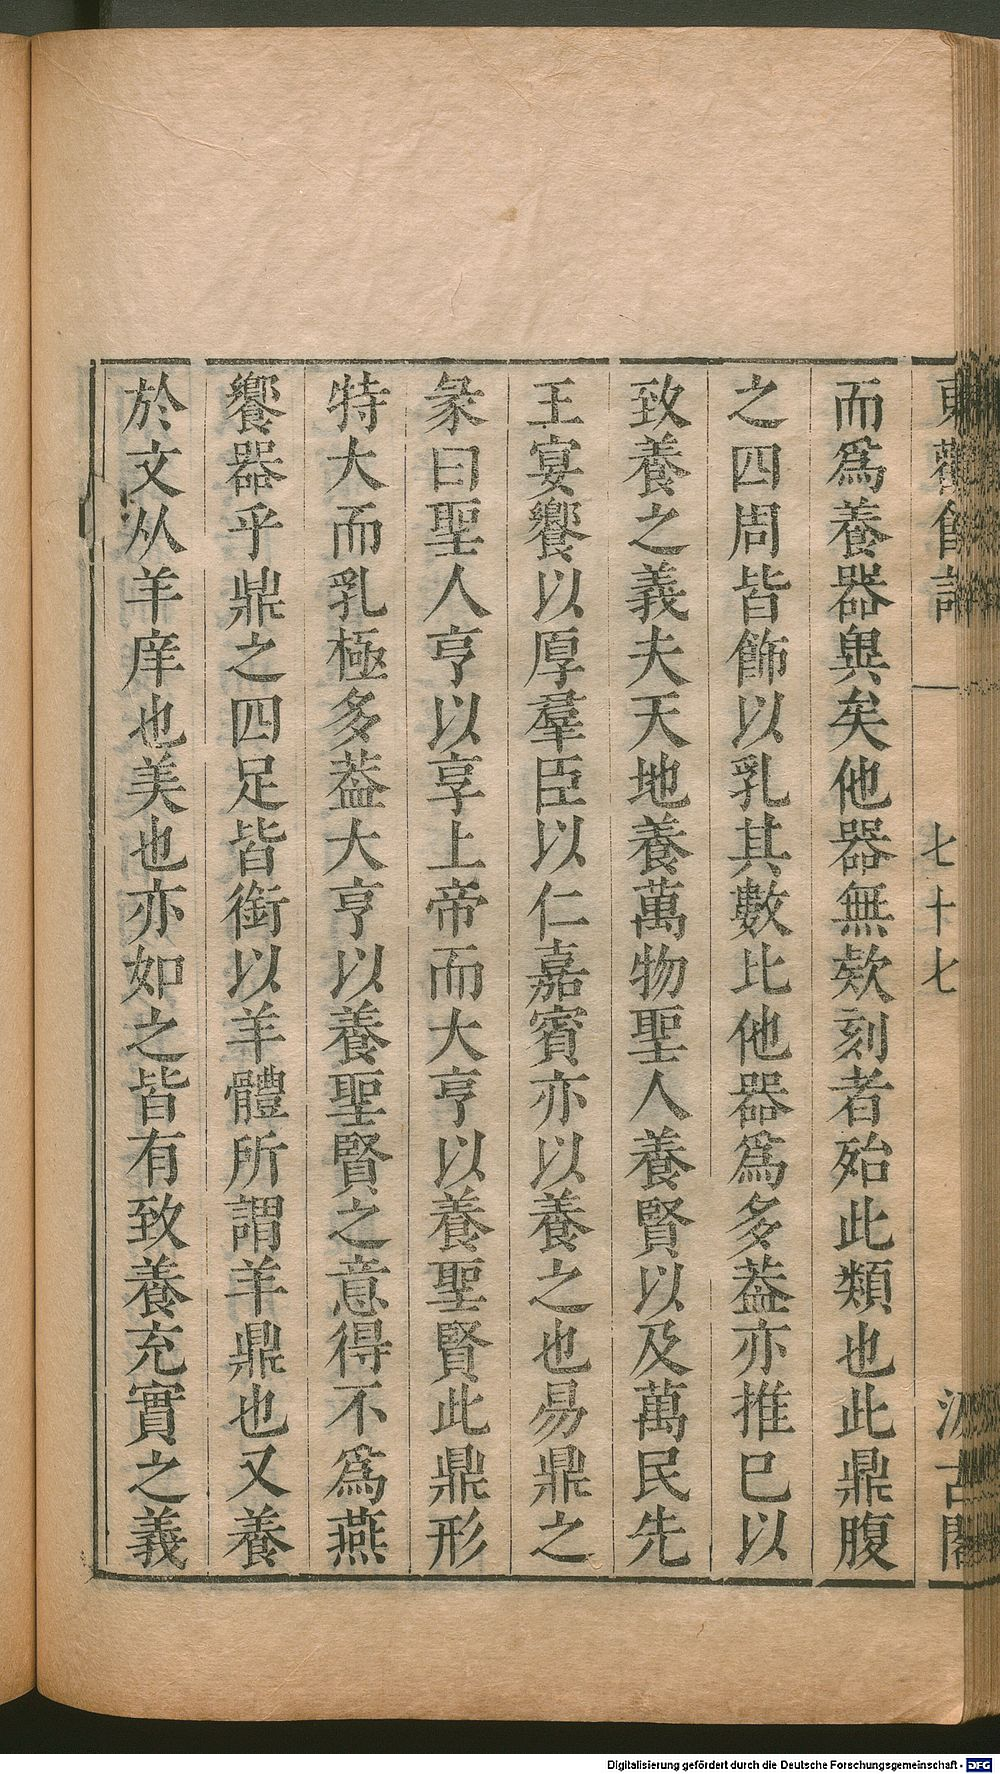 東觀餘論
一
七十七
汲古閣
而爲養器與矣他器無欵刻者殆此類也此鼎腹
之四周皆飾以乳其數比他器爲多葢亦推巳以
致養之義夫天地養萬物聖人養賢以及萬民先
王宴饗以厚羣臣以仁嘉賓亦以養之也易鼎之
彖曰聖人亨以享上帝而大亨以養聖賢此鼎形
特大而乳極多葢大亨以養聖賢之意得不爲燕
饗器乎鼎之四足皆銜以羊體所謂羊鼎也又養
於文从羊庠也美也亦如之皆有致養充實之義
Digitalisierung gefördert durch die Deutsche Forschungsgemeinschaft - DFG